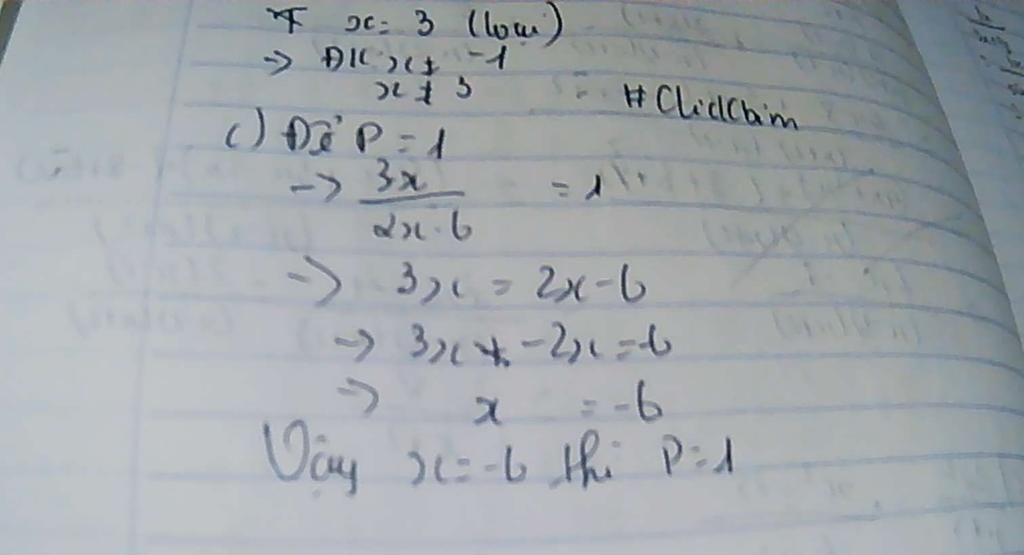 x = 3 (loại)
-> ĐK x ≠ -1
x ≠ 3
#ClidChim
c) Để P = 1
-> 3x / 2x - 6 = 1
-> 3x = 2x - 6
-> 3x - 2x = -6
-> x = -6
Vậy x = -6 thì P = 1